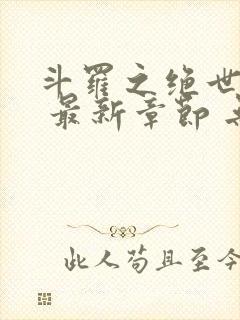 斗羅之绝世
最新章節
此人苟且至今